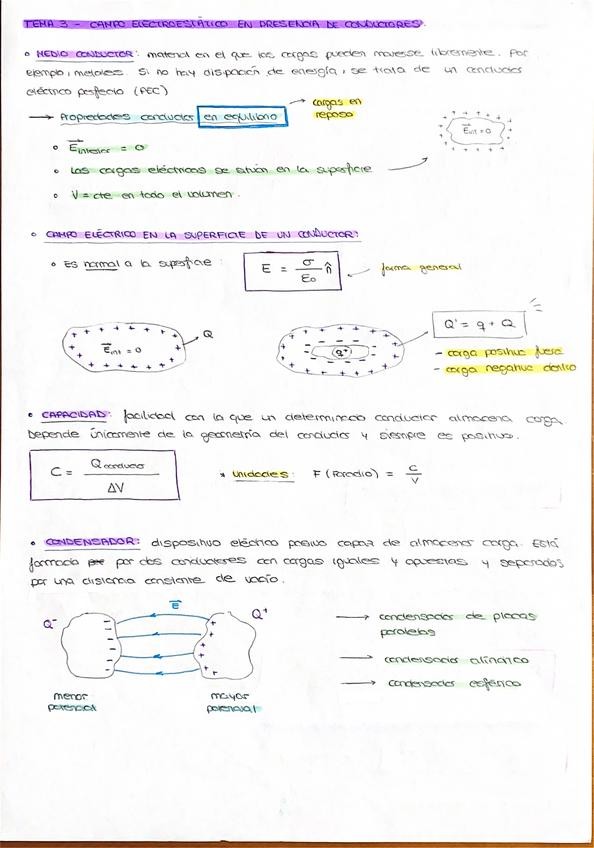 TEMA 3 - CAMPO ELECTROESTÁTICO EN PRESENCIA DE CONDUCTORES.
• MEDIO CONDUCTOR: material en el que las cargas pueden moverse libremente. Por
ejemplo, metales. Si no hay disipación de energía, se trata de un conductor
eléctrico perfecto (PEC)
→ Propiedades conductor en equilibrio → cargas en
reposo
• E⃗interior = 0
• Las cargas eléctricas se sitúan en la superficie
• V = cte en todo el volumen.
E⃗int = 0
• CAMPO ELÉCTRICO EN LA SUPERFICIE DE UN CONDUCTOR:
• Es normal a la superficie: E = σ/ε₀ n̂ forma general
E⃗int = 0
Q
q⁺
Q' = q + Q
- carga positiva fuera
- carga negativa dentro
• CAPACIDAD: facilidad con la que un determinado conductor almacena carga.
Depende únicamente de la geometría del conductor y siempre es positiva.
C = Qconductor/ΔV * Unidades: F (Faradio) = C/V
• CONDENSADOR: dispositivo eléctrico pasivo capaz de almacenar carga. Está
formado por dos conductores con cargas iguales y opuestas y separados
por una distancia constante de vacío.
Q⁻ E⃗ Q⁺
menor
potencial
mayor
potencial
→ condensador de placas
paralelas
→ condensador cilíndrico
→ condensador esférico